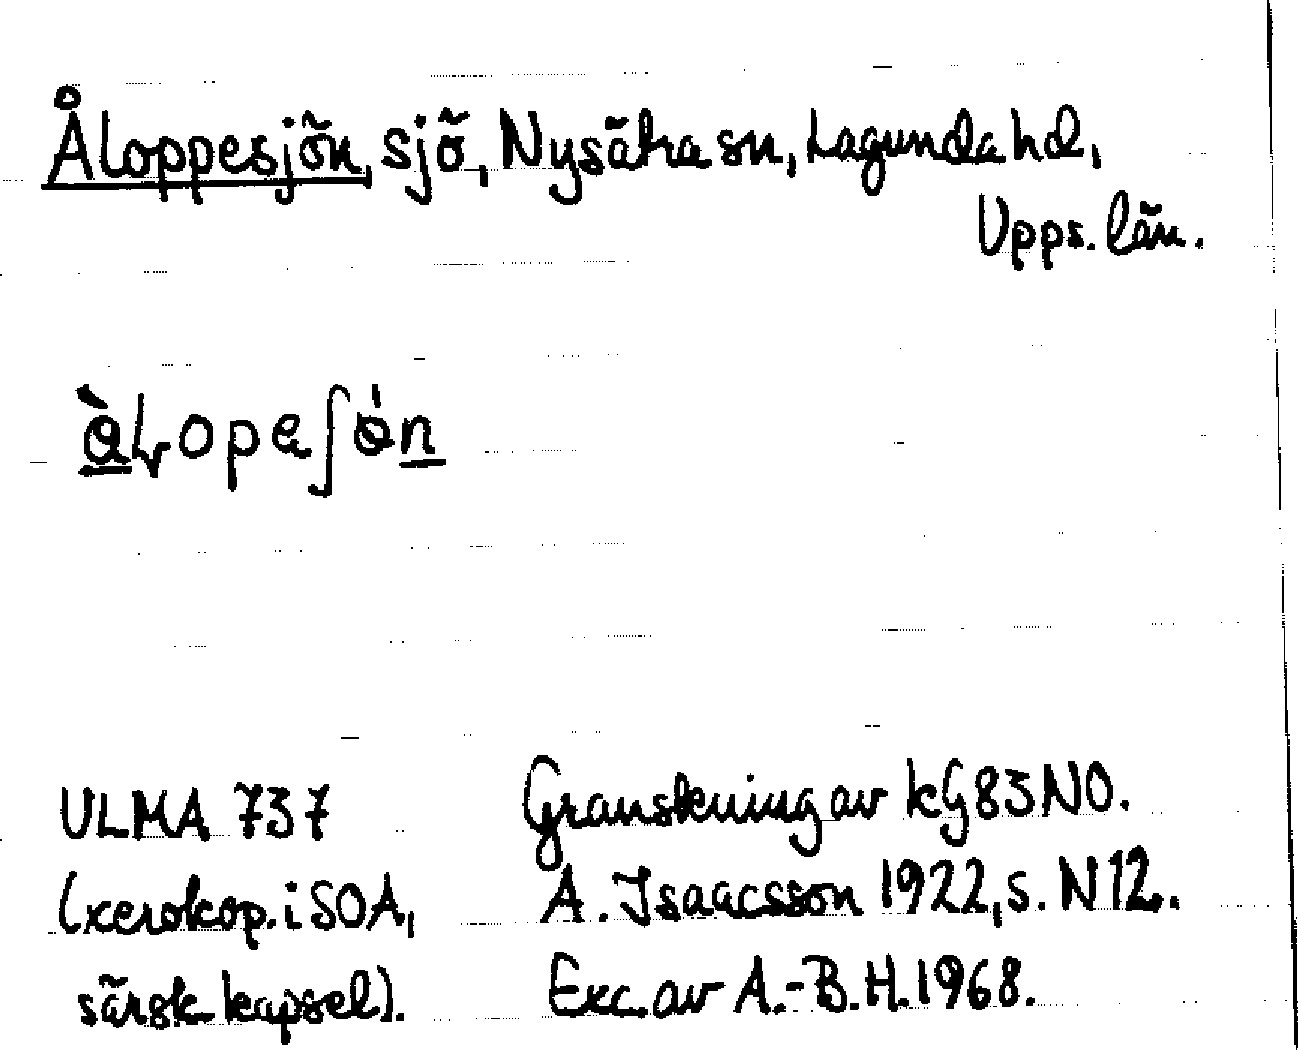 Åloppesjön, sjö, Nysätra sn, Lagunda hd,
Upps. län.
ULMA 737
(xerokop. i SOA,
särsk. kapsel).
Granskning av kG 83 NO.
A. Isaacsson 1922, s. N 12.
Exc. av A.-B. H. 1968.